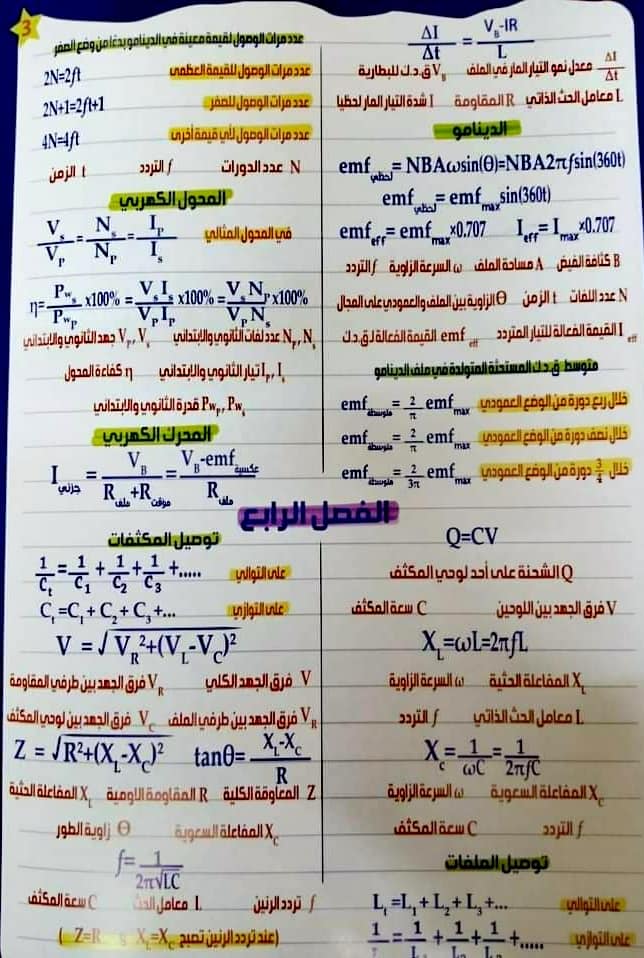 3
ΔI/Δt = (V_B-IR)/L
ΔI/Δt معدل نمو التيار المار في الملف V_B ق.د.ك للبطارية
L معامل الحث الذاتي R المقاومة I شدة التيار المار لحظيا
الدينامو
emf لحظي = NBAωsin(Θ)=NBA2πfsin(360t)
emf لحظي = emf_max sin(360t)
emf_eff = emf_max ×0.707 I_eff = I_max ×0.707
B كثافة الفيض A مساحة الملف ω السرعة الزاوية f التردد
N عدد اللفات t الزمن Θ الزاوية بين الملف والعمودي على المجال
I_eff القيمة الفعالة للتيار المتردد emf_eff القيمة الفعالة ل ق.د.ك
متوسط ق.د.ك المستحثة المتولدة في ملف الدينامو
خلال ربع دورة من الوضع العمودي emf متوسطة = 2/π emf_max
خلال نصف دورة من الوضع العمودي emf متوسطة = 2/π emf_max
خلال 3/4 دورة من الوضع العمودي emf متوسطة = 2/3π emf_max
عدد مرات الوصول لقيمة معينة في الدينامو بدءا من وضع الصفر
عدد مرات الوصول للقيمة العظمى 2N=2ft
عدد مرات الوصول للصفر 2N+1=2ft+1
عدد مرات الوصول لأي قيمة أخرى 4N=4ft
N عدد الدورات f التردد t الزمن
المحول الكهربي
في المحول المثالي V_s/V_P = N_s/N_P = I_P/I_s
η= P_ws/P_wp x100% = V_s I_s/V_P I_P x100% = V_s N_P/V_P N_s x100%
N_P, N_s عدد لفات الثانوي والابتدائي V_P, V_s جهد الثانوي والابتدائي
I_P, I_s تيار الثانوي والابتدائي η كفاءة المحول
Pw_P, Pw_s قدرة الثانوي والابتدائي
المحرك الكهربي
I جزئي = V_B/(R موقت +R ملف) = (V_B-emf عكسية)/R ملف
الفصل الرابع
Q=CV
Q الشحنة على أحد لوحي المكثف
V فرق الجهد بين اللوحين C سعة المكثف
X_L=ωL=2πfL
X_L المفاعلة الحثية ω السرعة الزاوية
L معامل الحث الذاتي f التردد
X_C = 1/ωC = 1/2πfC
X_C المفاعلة السعوية ω السرعة الزاوية
f التردد C سعة المكثف
توصيل الملفات
على التوالي L_t =L_1 + L_2 + L_3 +...
على التوازي 1/L = 1/L + 1/L + 1/L +.....
توصيل المكثفات
على التوالي 1/C_t = 1/C_1 + 1/C_2 + 1/C_3 +.....
على التوازي C_t =C_1 + C_2 + C_3 +...
V = √V_R²+(V_L-V_C)²
V فرق الجهد الكلي V_R فرق الجهد بين طرفي المقاومة
V_R فرق الجهد بين طرفي الملف V_C فرق الجهد بين لوحي المكثف
Z = √R²+(X_L-X_C)² tanθ= (X_L-X_C)/R
Z المعاوقة الكلية R المقاومة الاومية X_L المفاعلة الحثية
X_C المفاعلة السعوية Θ زاوية الطور
f= 1/2π√LC
f تردد الرنين L معامل الحث C سعة المكثف
(عند تردد الرنين تصبح X_L=X_C و Z=R)